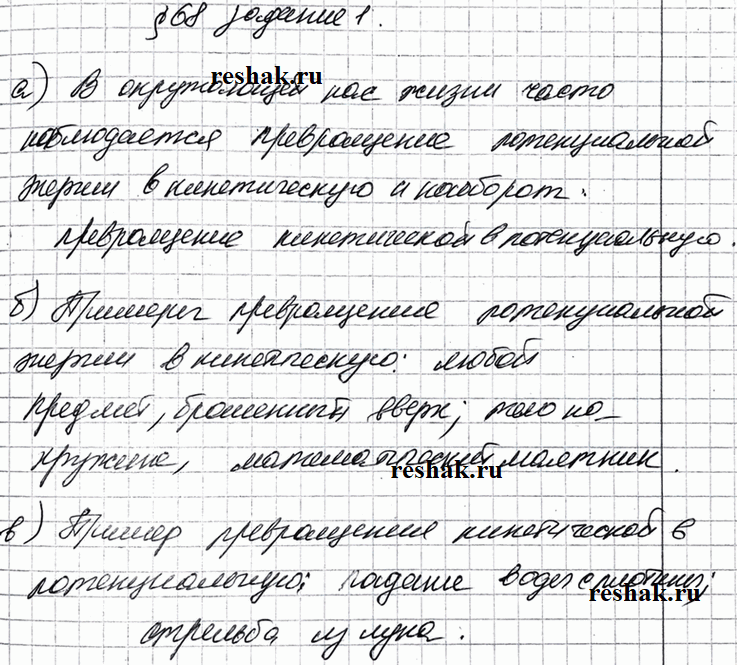 §68 задание 1.
reshak.ru
а) В окружающей нас жизни часто
наблюдается превращение потенциальной
энергии в кинетическую и наоборот:
превращение кинетической в потенциальную.
б) Пример превращение потенциальной
энергии в кинетическую: любой
предмет, брошенный вверх; тело на
пружине, математический маятник.
reshak.ru
в) Пример превращения кинетической в
потенциальную: падение воды с плотины;
reshak.ru
стрельба из лука.